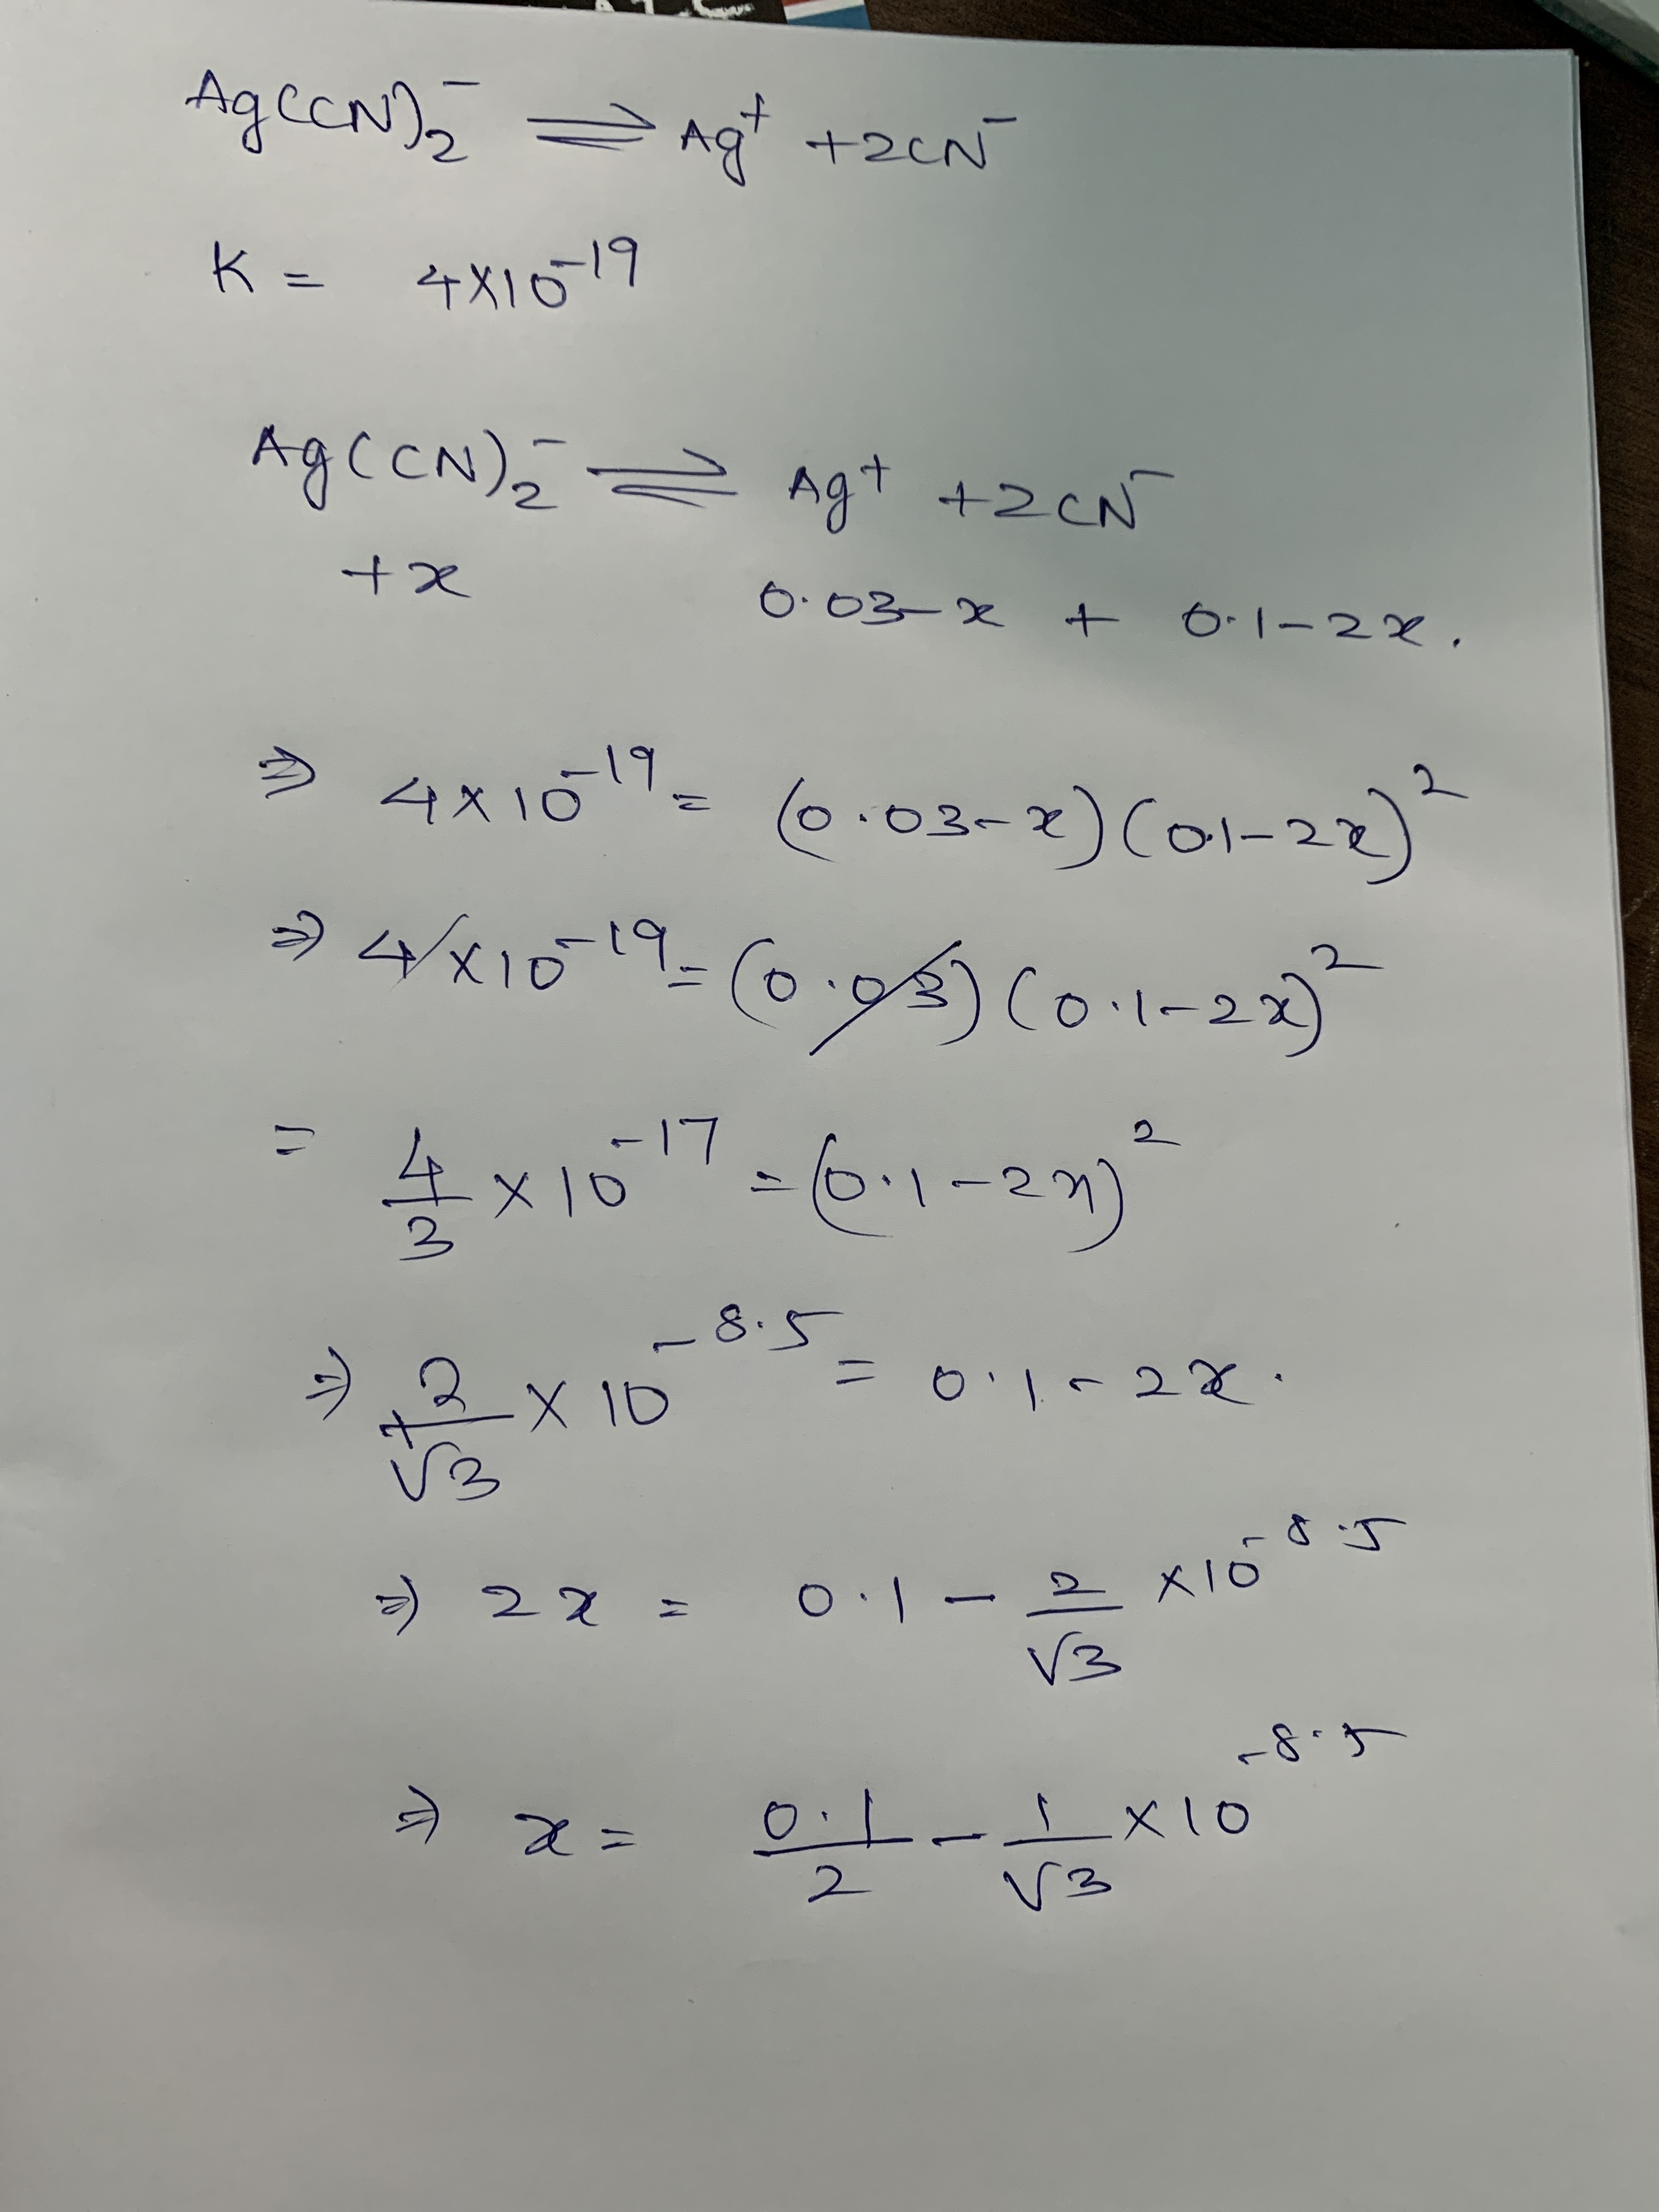 Ag(CN)₂⁻ ⇌ Ag⁺ + 2CN⁻
K = 4×10⁻¹⁹
Ag(CN)₂⁻ ⇌ Ag⁺ + 2CN⁻
+x 0.03-x + 0.1-2x.
⇒ 4×10⁻¹⁹ = (0.03-x)(0.1-2x)²
⇒ 4×10⁻¹⁹ = (0.03)(0.1-2x)²
= 4/3 × 10⁻¹⁷ = (0.1-2x)²
⇒ 2/√3 × 10^-8.5 = 0.1-2x.
⇒ 2x = 0.1 - 2/√3 × 10^-8.5
⇒ x = 0.1/2 - 1/√3 × 10^-8.5